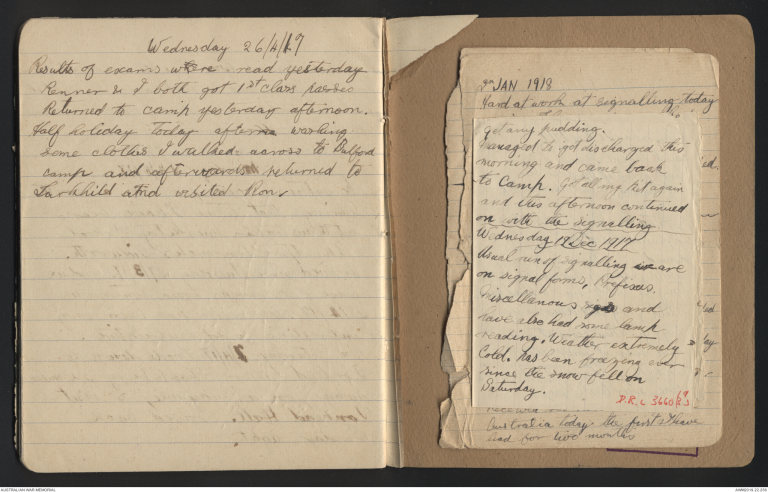 Wednesday 26/4/17
Results of exams were read yesterday
Renner & I both got 1st class passes
Returned to camp yesterday afternoon.
Half holiday today after washing
some clothes I walked across to Bulford
camp and afterwards returned to
Larkhild and visited Ron.
2nd JAN 1918
Hard at work at signalling today
get any pudding.
Managed to get discharged this
morning and came back
to Camp. Got all my kit again
and this afternoon continued
on with the signalling
Wednesday 19 Dec 1917
Usual run of signalling are
on signal forms, Prefixes.
Miscellanous and
have also had some lamp
reading. Weather extremely
Cold. has been freezing ever
since the snow fell on
Saturday.
D.R.L 3660
Australia today the first I have
had for two months
AUSTRALIAN WAR MEMORIAL